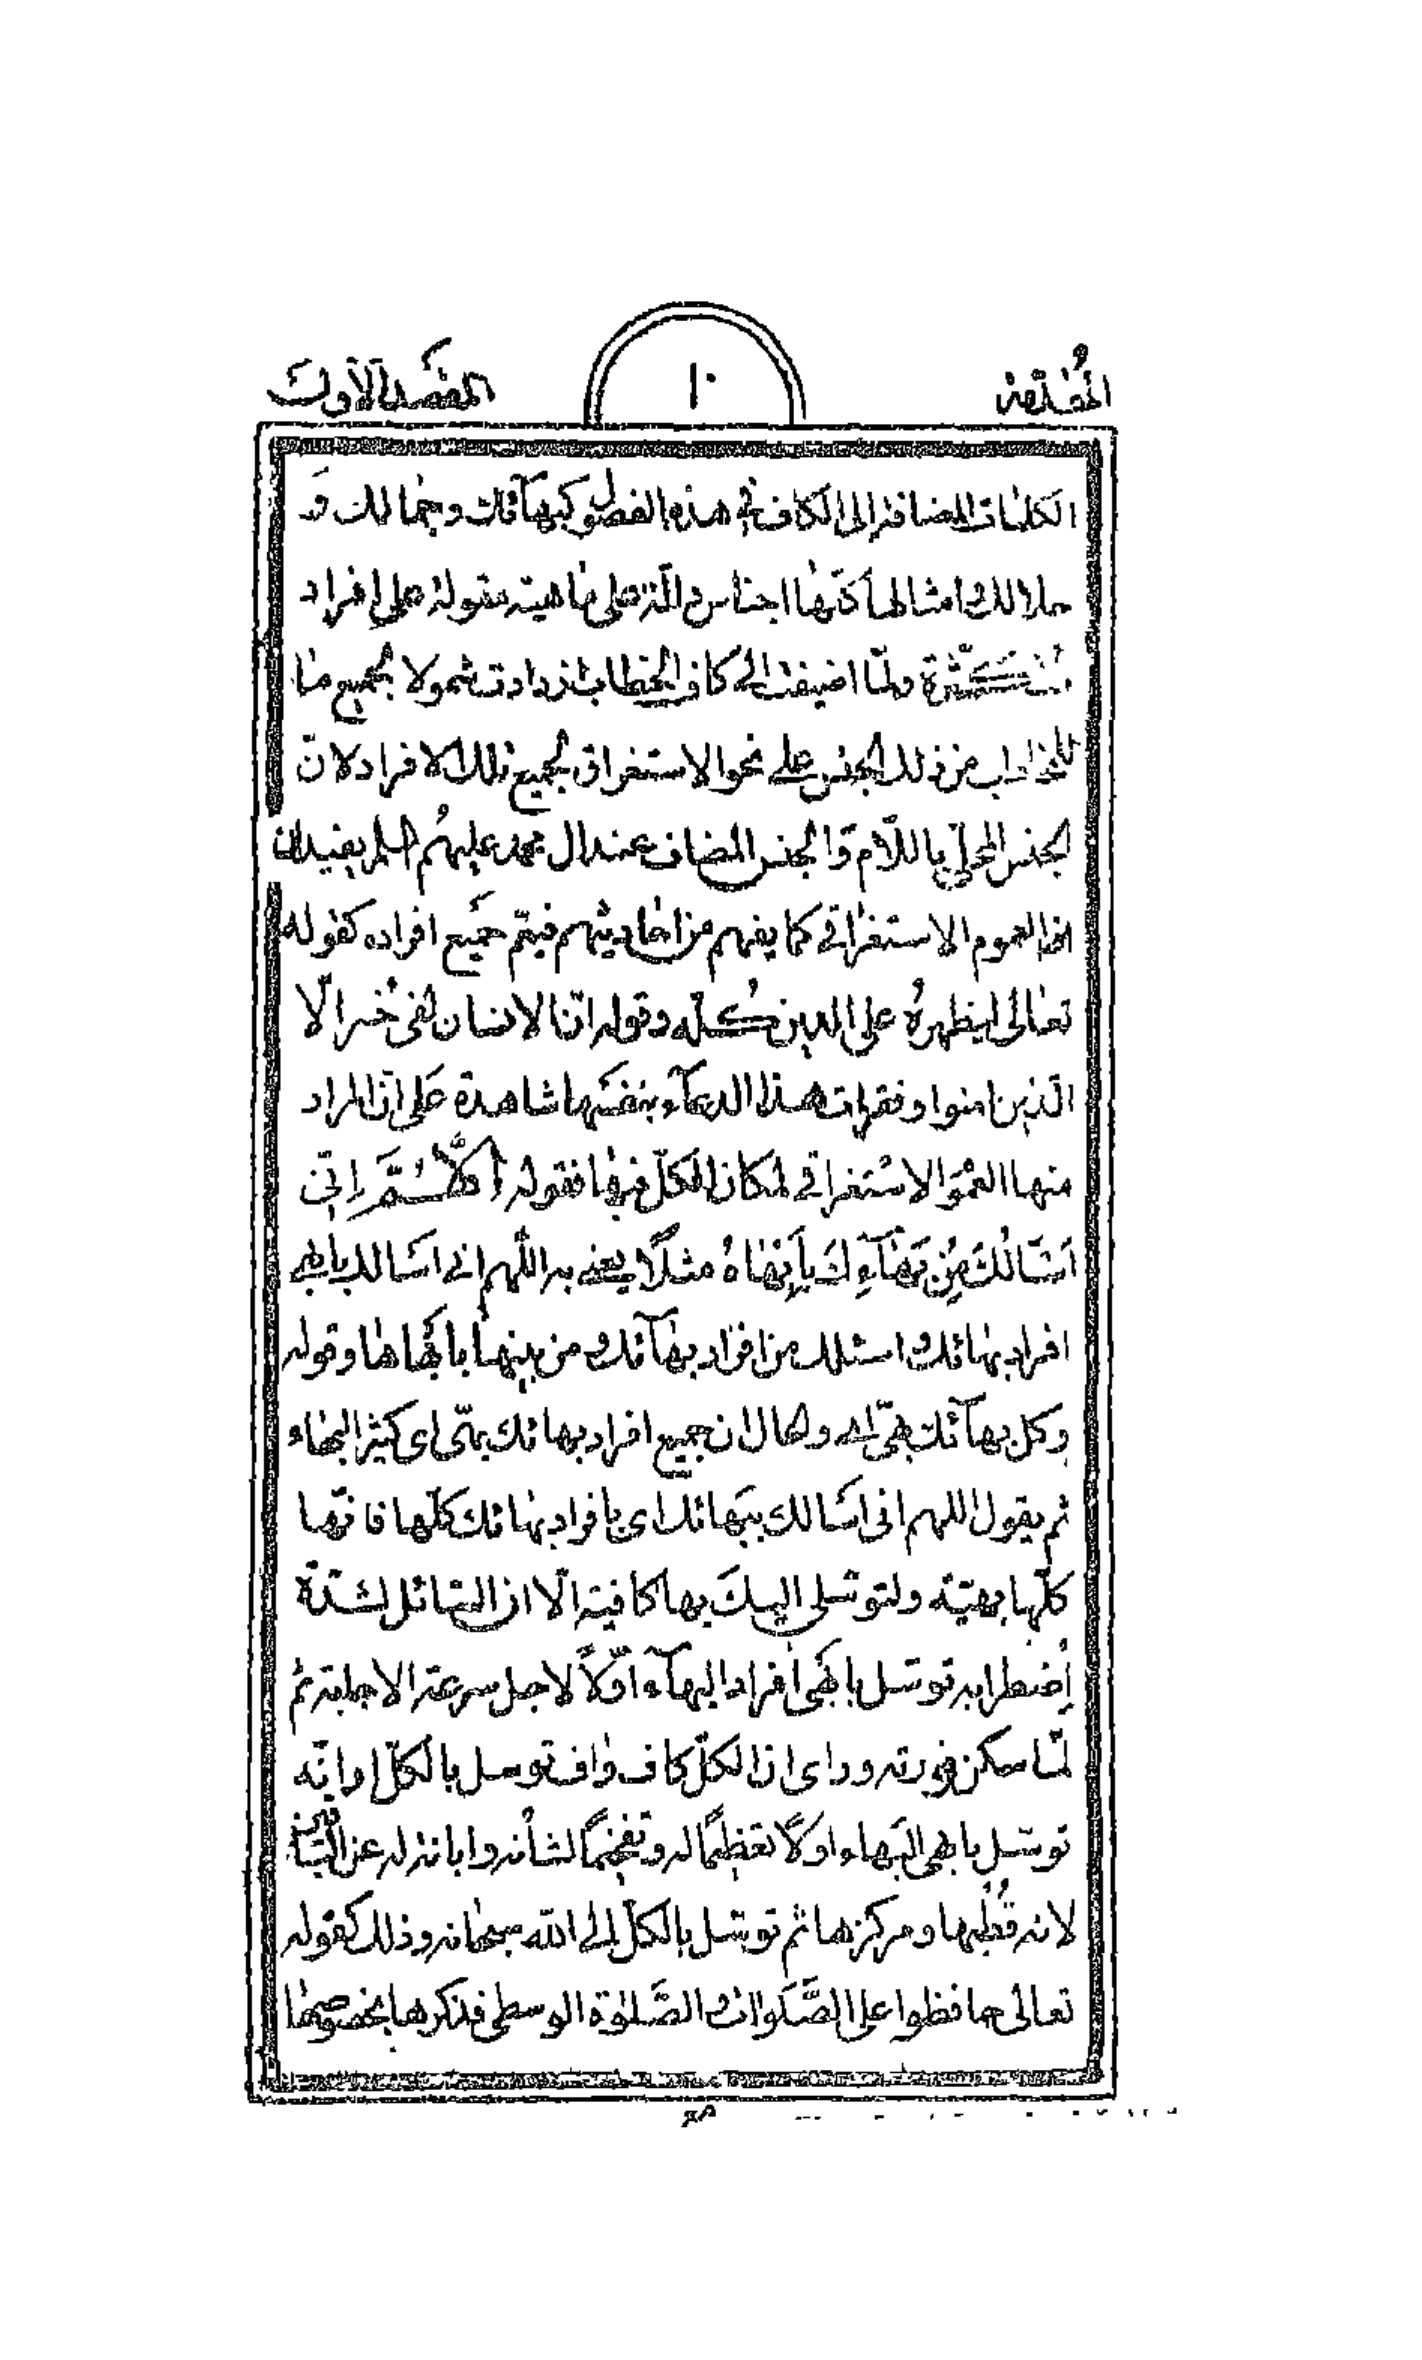 المقدمة
١٠
المقصد الأول
الكلمات المضافة إلى الكاف في هذه الفصول كبهآئك وجمالك وَ
جلالك وامثالها كلّها اجناس دالّة على ماهية مقولة على افراد
متكثّرة ولمّا اضيفت الى كاف الخطاب ازدادت شمولا لجميع ما
للمخاطب من ذلك الجنس على نحو الاستغراق لجميع تلك الافراد لانّ
الجنس المحلّى باللّام وَالجنس المضاف عند ال محمد عليهم السلم يفيدان
العموم الاستغراقي كما يفهم من احاديثهم فيعمّ جَميع افراده كقوله
تعالى ليظهرهُ على الدين كُلّه وقوله انّ الانسان لفى خُسر الّا
الذين امنوا وفقرات هذا الدعآء بنفسَها شاهدة عَلى انّ المراد
منها العموم الاستغراقي لمكان الكلّ فيها فقوله اَللّهُمَّ اِنّى
اَسَئَالُكَ مِنْ بَهَآءِكَ بِاَبْهَاهُ مثلًا يعنى به اللّهم انى اسَالك بابهى
افراد بهائك واسئلك من افراد بهآئك ومن بينها بابهاها وقوله
وكل بهآئك بهىّ اى والحال ان جميع افراد بهائك بهىّ اى كثير البهاء
ثم يقول اللهم انى اسَالك ببَهائك اى بافراد بهائك كلّها فانّها
كلّها بهيّة ولتوسّلى اليكَ بها كافية الّا ان السّائل لشدّة
اِضطرابه توسّل بابهى اَفراد البهآء اوّلاً لاجل سرعة الاجابة ثم
لمّا سكن فورته وراى ان الكلّ كاف وَاف توسل بالكلّ او انّه
توسّل بابهى البَهاء اوّلًا تعظِيمًا له وتفخيمًا لشأنه وابانة له عن البَاقين
لانه قُطبها ومركزها ثم توسّل بالكلّ الى اللّه سبحانه وذلك كقوله
تعالى حافظوا على الصَّلَوات والصَّلوٰة الوسطى فذكرها بخصوصها
ثم